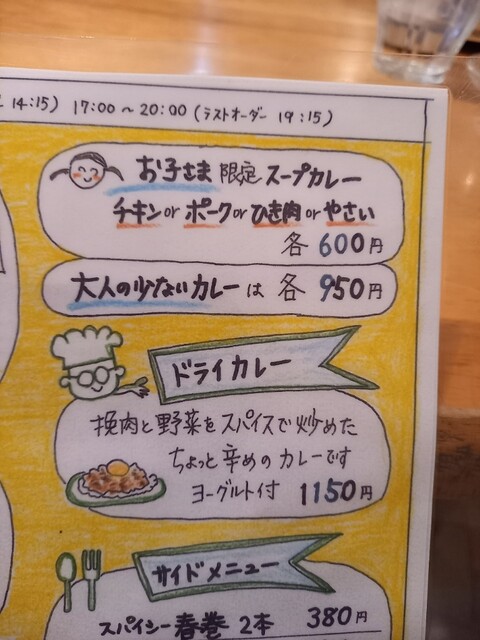 14:15) 17:00～20:00 (ラストオーダー 19:15)
お子さま限定スープカレー
チキンorポークorひき肉orやさい
各600円
大人の少ないカレーは各950円
ドライカレー
挽肉と野菜をスパイスで炒めた
ちょっと辛めのカレーです
ヨーグルト付 1150円
サイドメニュー
スパイシー春巻2本 380円